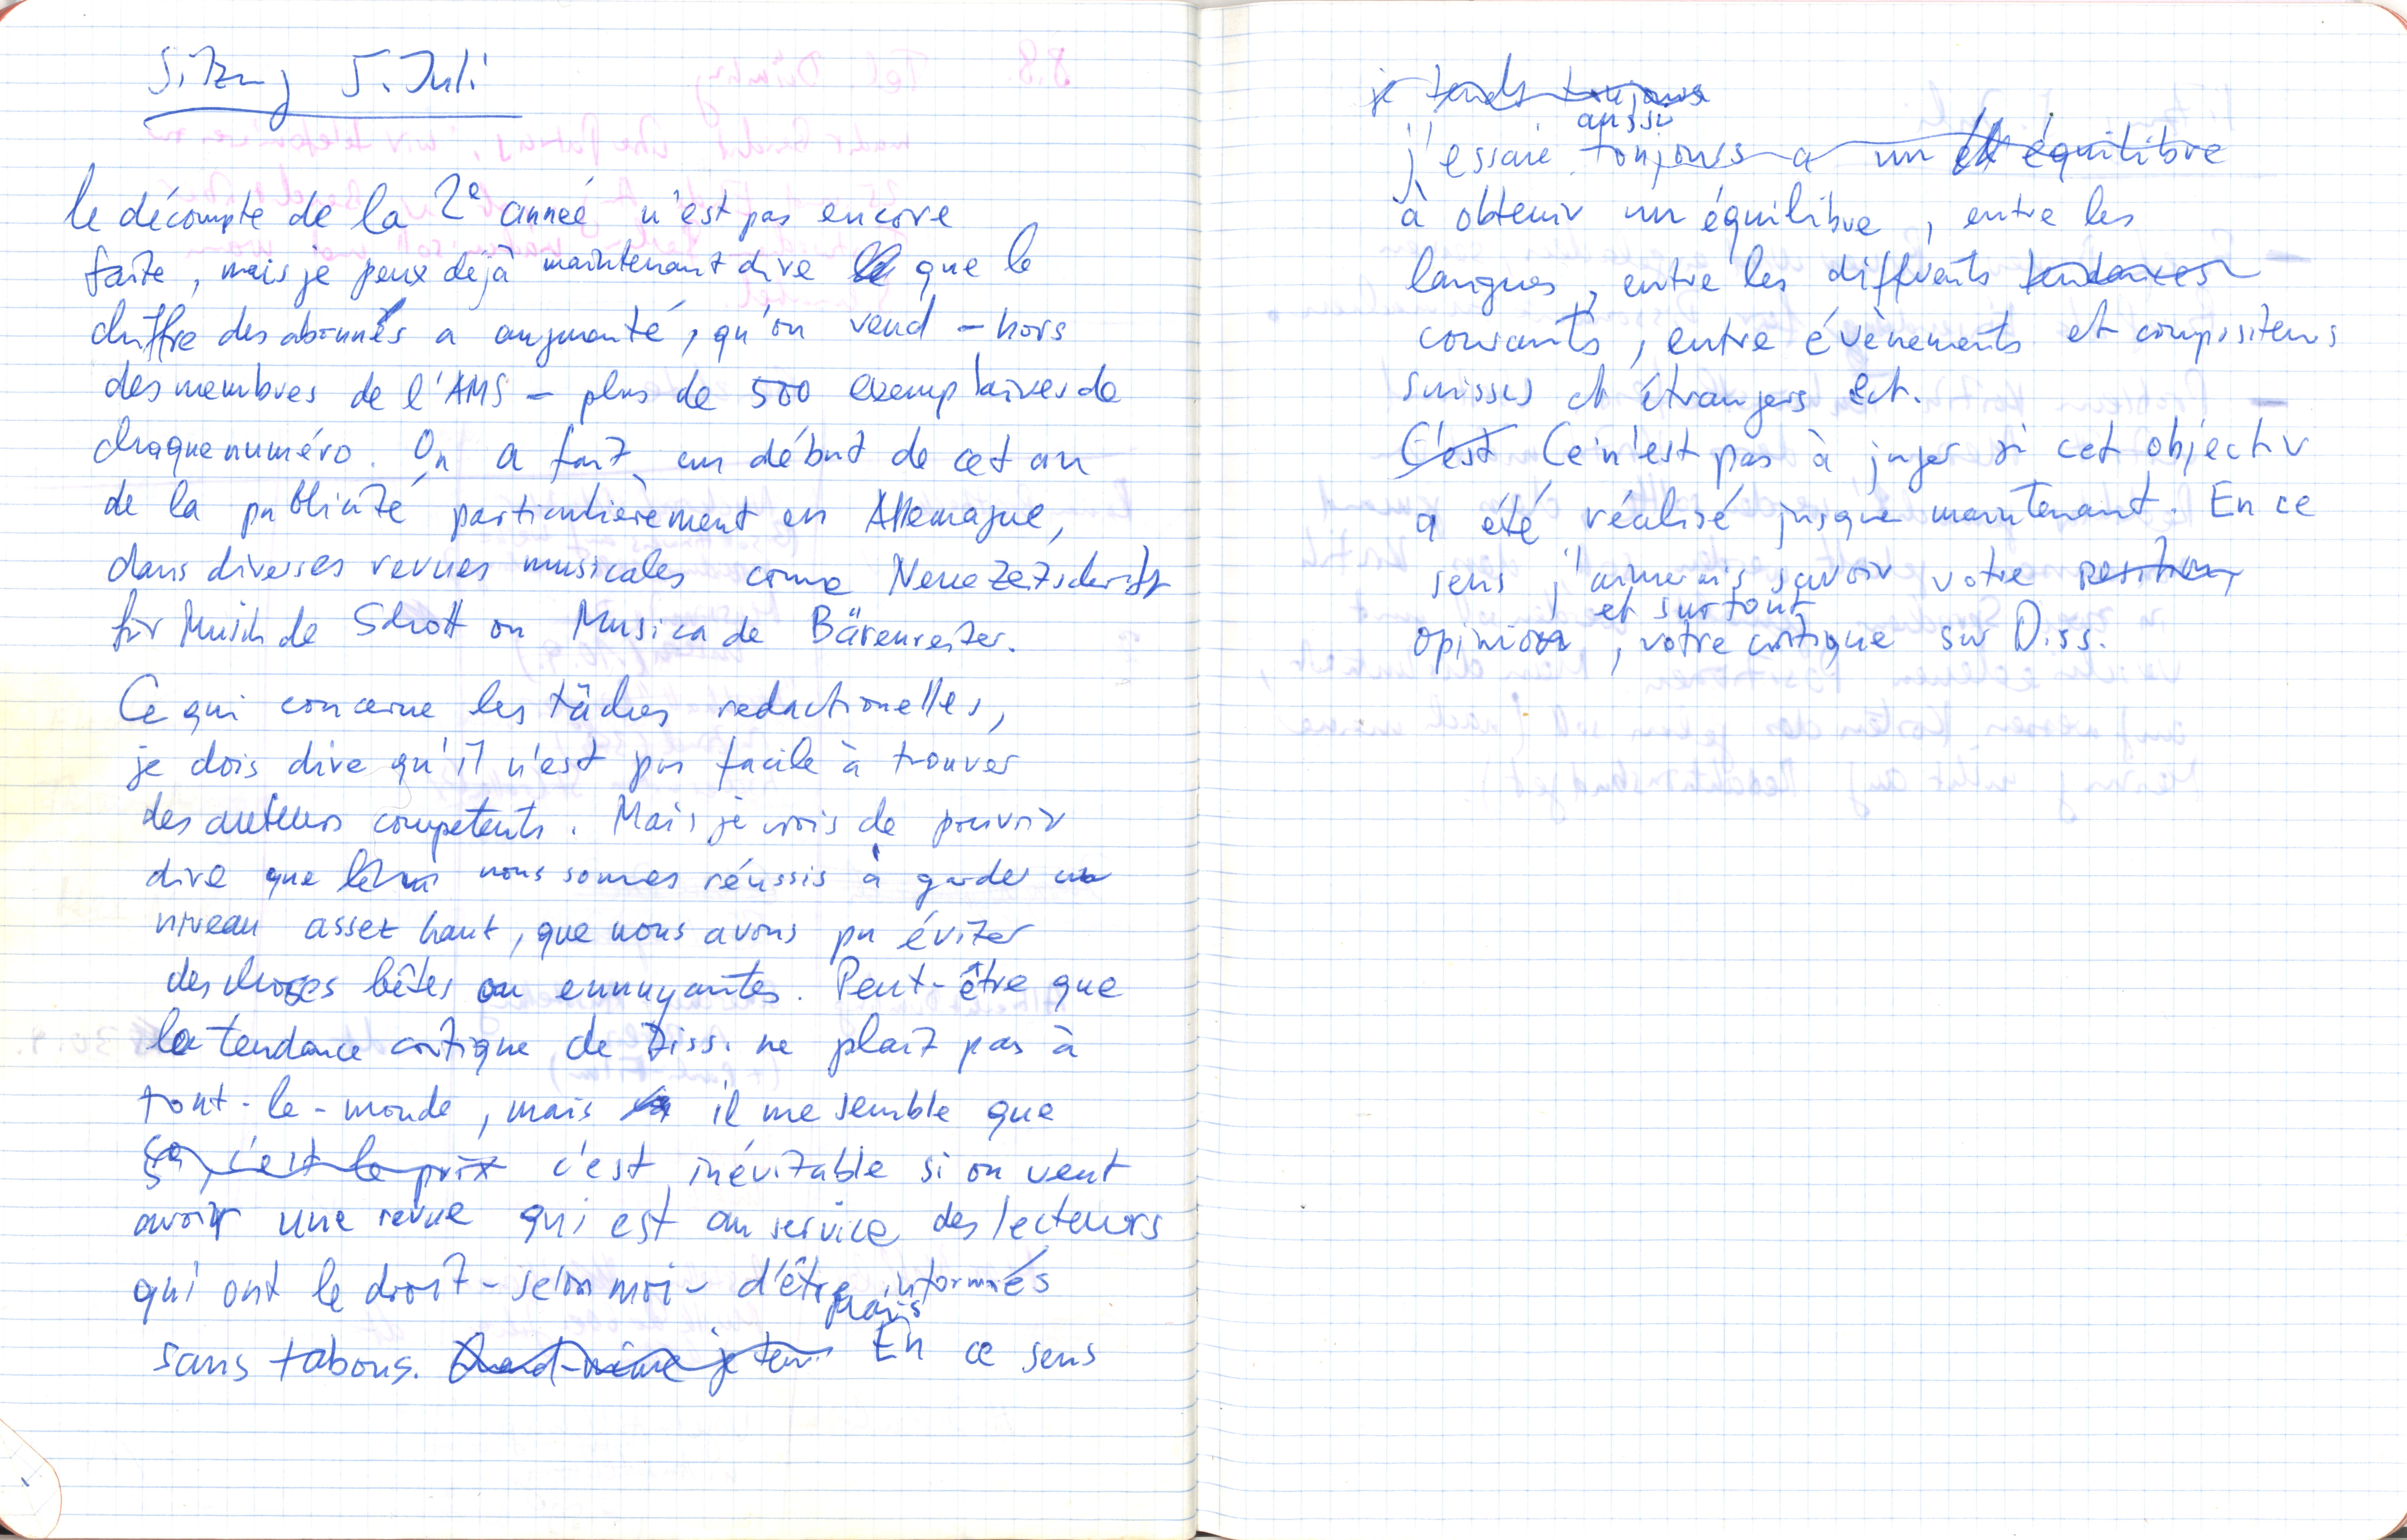 Sitzung 5. Juli
le décompte de la 2e année n'est pas encore
faite, mais je peux déjà maintenant dire que le
chiffre des abonnés a augmenté, qu'on vend - hors
des membres de l'AMS - plus de 500 exemplaires de
chaque numéro. On a fait au début de cet an
de la publicité particulièrement en Allemagne,
dans diverses revues musicales come Neue Zeitschrift
für Musik de Schott ou Musica de Bärenreiter.
Ce qui concerne les tâches redactionelles,
je dois dire qu'il n'est pas facile à trouver
des auteurs competents. Mais je crois de pouvoir
dire que nous sommes réussis à garder un
niveau assez haut, que nous avons pu éviter
des choses bêtes ou ennuyantes. Peut-être que
la tendance critique de Diss. ne plaît pas à
tout-le-monde, mais il me semble que
ça, c'est le prix c'est inévitable si on veut
avoir une revue qui est au service des lecteurs
qui ont le droit - selon moi - d'être informés
mais
sans tabous. Quand-même je tens En ce sens
je tends toujours
aussi
j'essaie toujours a un équilibre
à obtenir un équilibre, entre les
langues, entre les différents tendances
courants, entre évènements et compositeurs
suisses et étrangers ect.
C'est Ce n'est pas à juger si cet objectiv
a été réalisé jusque maintenant. En ce
sens j'aimerais savoir votre position
et surtout
opinion, votre critique sur Diss.